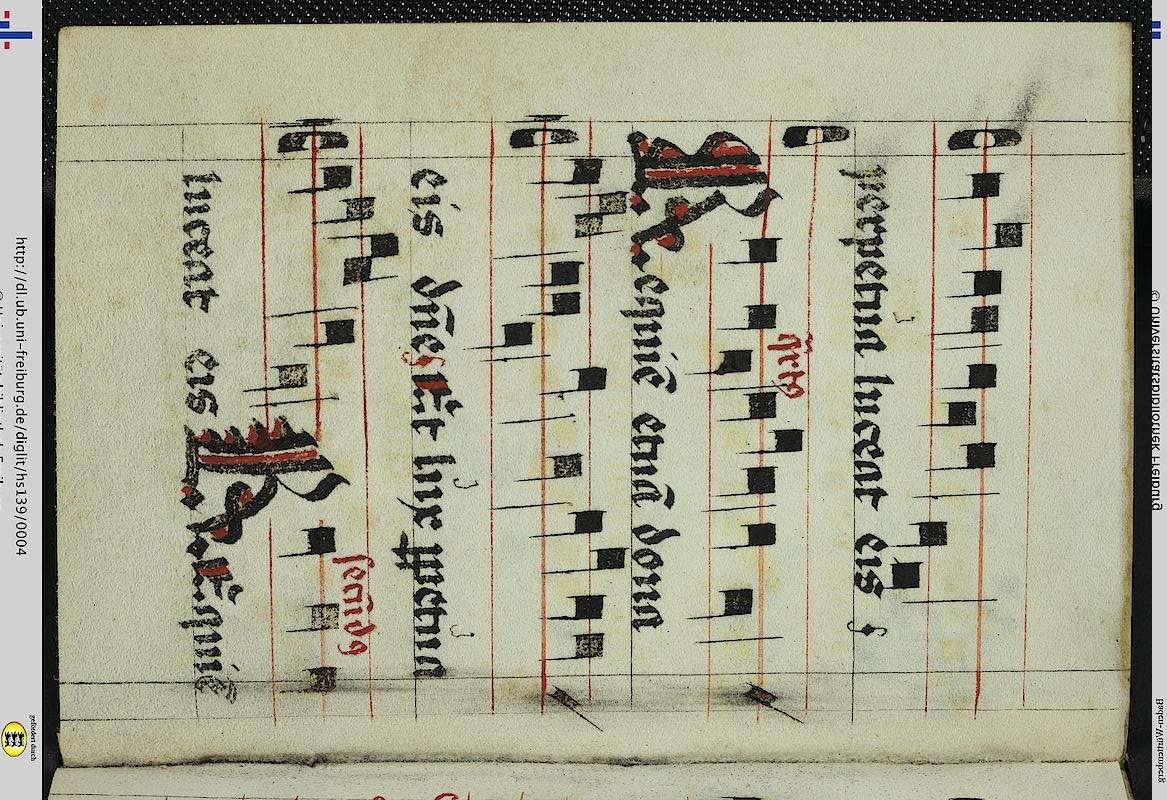 perpetua luceat eis
q̄rtꝰ
Requiē et'nā dona
eis dn̄e Et lux ꝑpetua
secūdꝰ
luceat eis Requiē
http://dl.ub.uni-freiburg.de/diglit/hs139/0004
© Universitätsbibliothek Freiburg
gefördert durch
Baden-Württemberg